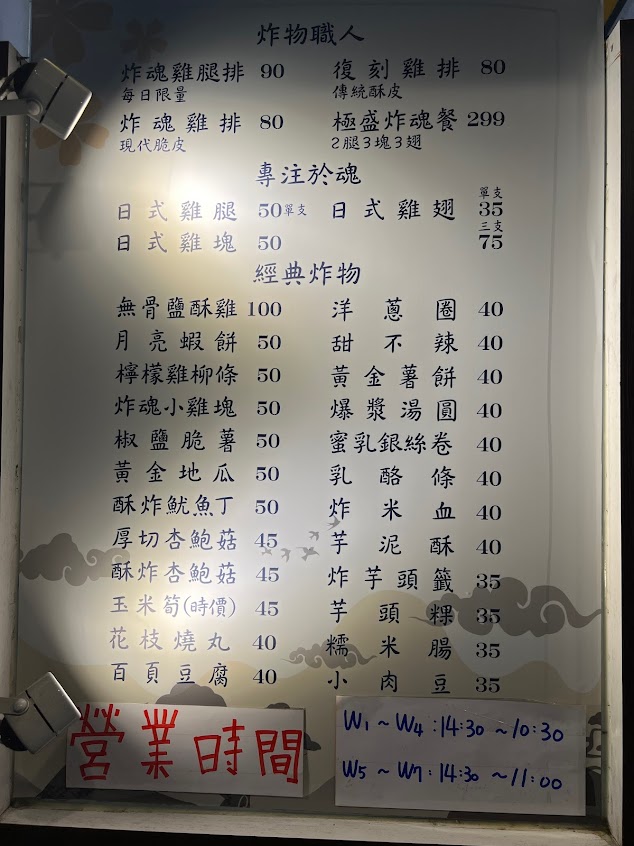 炸物職人
炸魂雞腿排 90
每日限量
復刻雞排 80
傳統酥皮
炸魂雞排 80
現代脆皮
極盛炸魂餐 299
2腿3塊3翅
專注於魂
日式雞腿 50單支
日式雞翅 單支 35
三支 75
日式雞塊 50
經典炸物
無骨鹽酥雞 100
洋蔥圈 40
月亮蝦餅 50
甜不辣 40
檸檬雞柳條 50
黃金薯餅 40
炸魂小雞塊 50
爆漿湯圓 40
椒鹽脆薯 50
蜜乳銀絲卷 40
黃金地瓜 50
乳酪條 40
酥炸魷魚丁 50
炸米血 40
厚切杏鮑菇 45
芋泥酥 40
酥炸杏鮑菇 45
炸芋頭籤 35
玉米筍(時價) 45
芋頭粿 35
花枝燒丸 40
糯米腸 35
百頁豆腐 40
小肉豆 35
營業時間
W1~W4:14:30~10:30
W5~W7:14:30~11:00